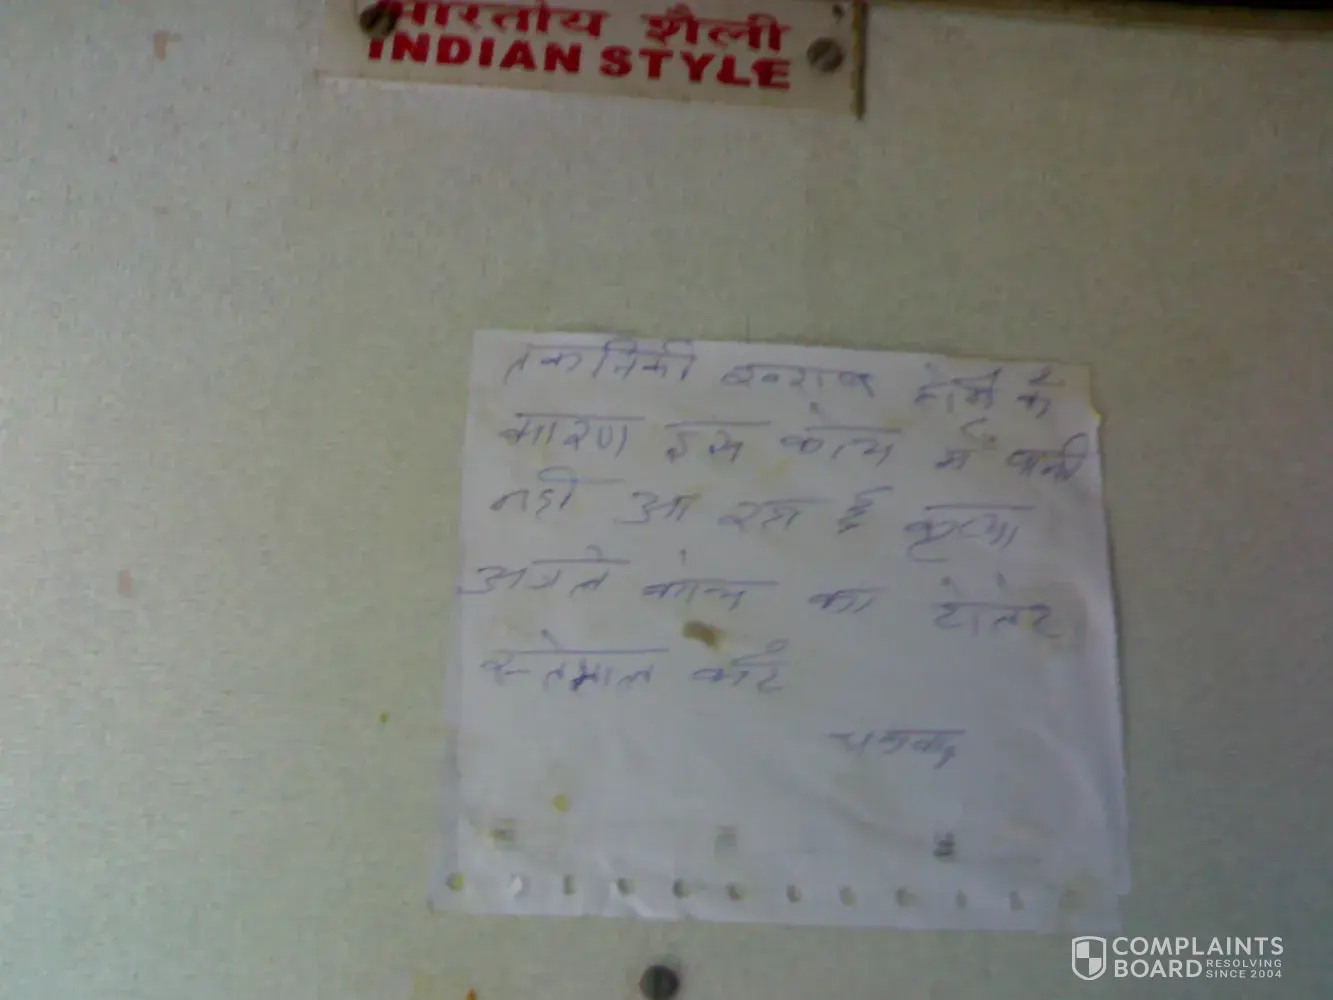 भारतीय शैली
INDIAN STYLE
तकनिकी खराब होने के
कारण इस कोच में पानी
नही आ रहा है कृप्या
अगले कोच का टोलेट
इस्तेमाल करें
धन्यवाद
COMPLAINTS
BOARD RESOLVING
SINCE 2004